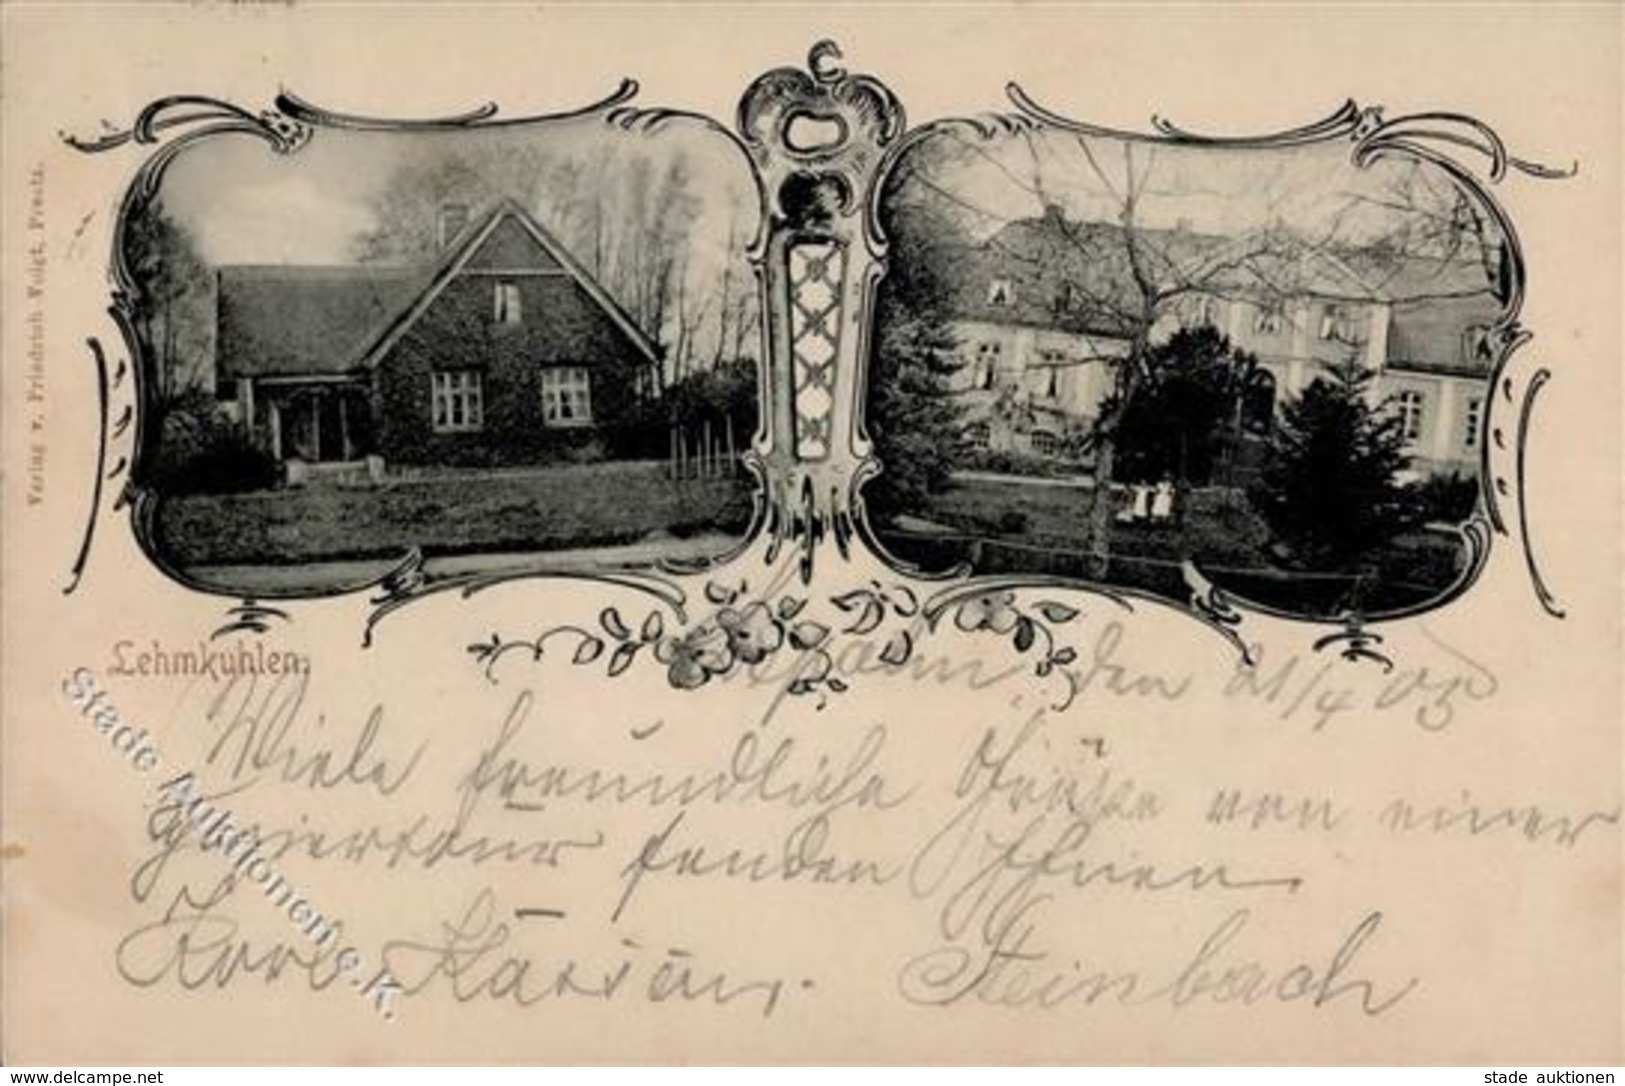 Verlag v. Friedrich Voigt, Preetz.
Lehmkuhlen.
den 21/4 05
Viele freundliche Grüße von einer
senden Ihnen
Steinbach
Stade Auktionen e.K.
www.delcampe.net
stade auktionen